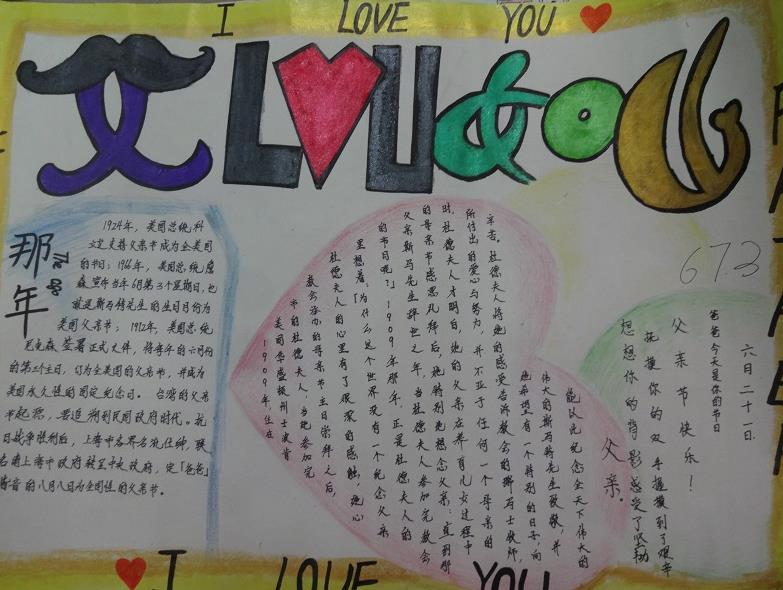 I LOVE YOU
那年
1924年，美国总统科
立支持父亲节成为全美国
的节日；1966年，美国总统詹
森宣布当年6月第3个星期日，也
就是斯马特先生的生日月份为
美国父亲节；1972年，美国总统
尼克森签署正式文件，将每年的六月份
的第三个主日，订为全美国的父亲节，并成为
美国永久性的国定纪念日。台湾的父亲
节起源，要追溯到民国政府时代。抗
日战争胜利后，上海市各界名流仕绅，联
名请上海市政府转呈中央政府，定「爸爸」
谐音的八月八日为全国性的父亲节。
1909年，住在
美国华盛顿州士波肯
市的杜德夫人，当她参加完
教会举办的母亲节主日崇拜之后，
杜德夫人的心里有了很深的感触，她心
里想着：「为什么这个世界没有一个纪念父亲
的节日呢？」1909年那年，正是杜德夫人的
父亲斯马特先生辞世之年，当杜德夫人参加完教会
的母亲节感恩礼拜后，她特别地想念父亲；直到那
时，杜德夫人才明白，她的父亲在养育儿女过程中
所付出的爱心与努力，并不亚于任何一个母亲的
辛苦。杜德夫人将她的感受告诉教会的瑞马士牧师，
她希望有一个特别的日子，向
伟大的斯马特先生致敬，并
能以此纪念全天下伟大的
父亲。
673
六月二十一日
爸爸今天是你的节日
父亲节快乐！
抚摸你的双手握摸到了艰辛
想想你的背影感受了坚韧
I LOVE YOU